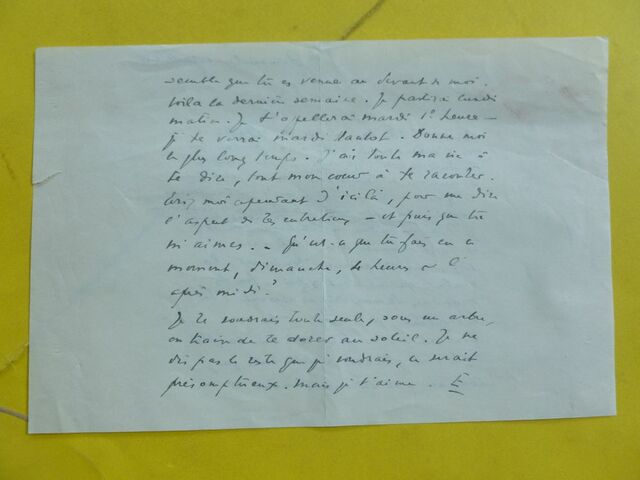 semble que tu es venue au devant de moi.
Voilà la dernière semaine. Je partirai lundi
matin. Je t'apellerai mardi 1e heure –
je te verrai mardi tantôt. Donne moi
le plus long temps. J'ai toute ma vie à
te dire, tout mon coeur à te raconter.
Ecris moi cependant d'ici là, pour me dire
l'aspect de tes entretiens – et puis que tu
m'aimes. – Qu'est-ce que tu fais en ce
moment, dimanche, heures de l'
après midi?
Je te voudrais toute seule, sous un arbre,
en train de te dorer au soleil. Je ne
dis pas le reste que je voudrais, ce serait
présomptueux. Mais je t'aime. E